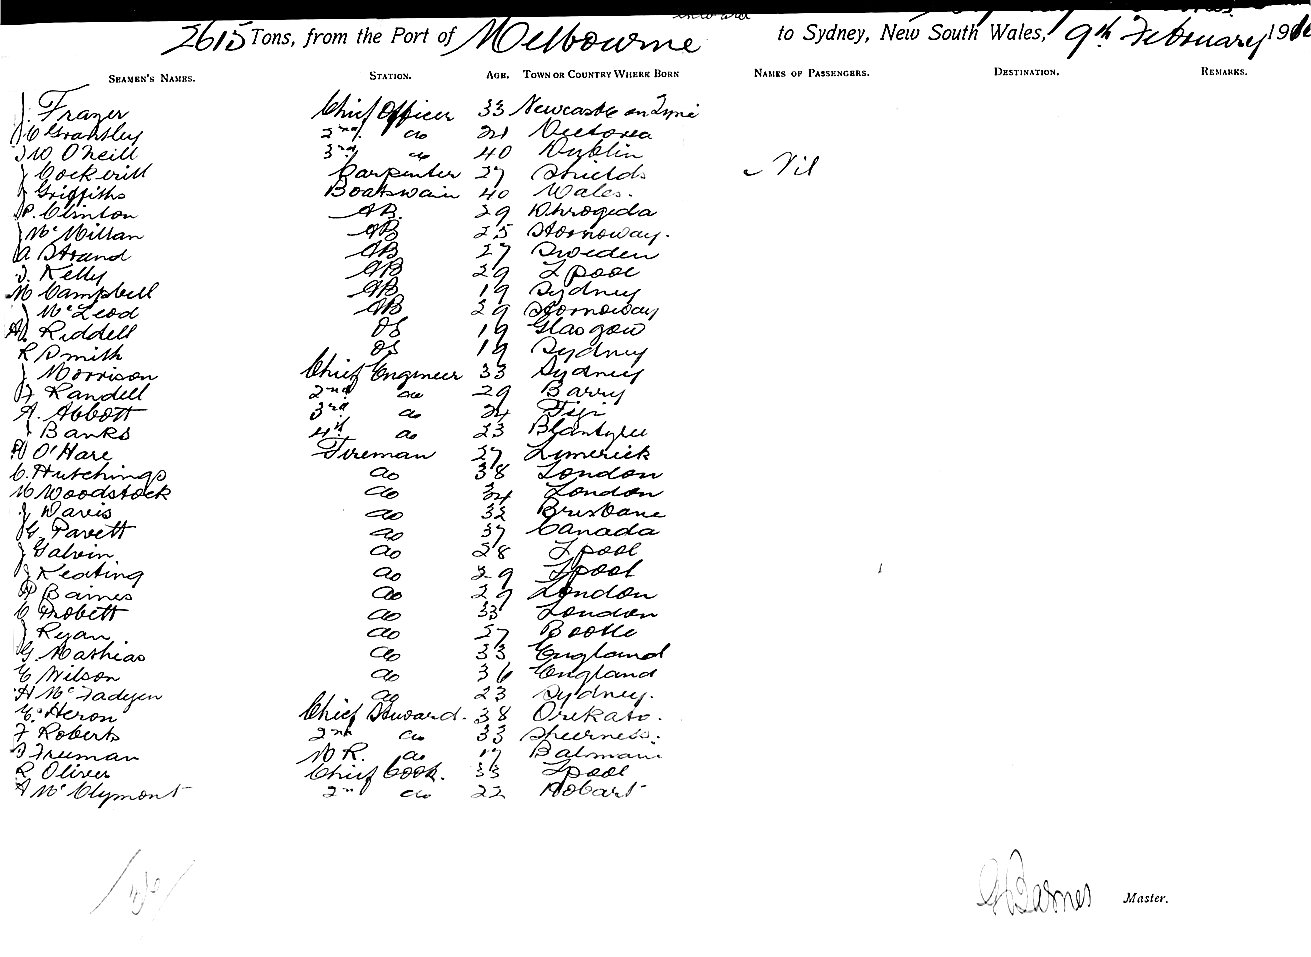 2615 Tons, from the Port of Melbourne to Sydney, New South Wales, 9th February 191
SEAMEN'S NAMES. STATION. AGE. TOWN OR COUNTRY WHERE BORN NAMES OF PASSENGERS. DESTINATION. REMARKS.
J. Frazer Chief Officer 33 Newcastle on Tyne
2nd do 21 Victoria
J W O'Neill 3rd do 40 Dublin
J Cockerill Carpenter 27 Shields Nil
J Griffiths Boatswain 40 Wales.
P. Clinton AB. 29 Dhrogeda
J McMillan AB 25 Stornoway.
A Strand AB 27 Sweden
J. Kelly AB 29 Lpool
M Campbell AB 19 Sydney
J McLeod AB 29 Stornoway
Riddell OS 19 Glasgow
R Smith OS 19 Sydney
J Morrison Chief Engineer 33 Sydney
Randell 2nd do 29 Barry
A. Abbott 3rd do 24 Fiji
J Banks 4th do 23 Blantyre
O'Hare Fireman 27 Limerick
C. Hutchings do 38 London
W Woodstock do 34 London
J Davis do 32 Brisbane
G. Pavett do 37 Canada
J Galvin do 28 Lpool
J Keating do 29 Lpool
Baines do 29 London
C Probett do 33 London
J Ryan do 27 Bootle
G Mathias do 33 England
E Wilson do 36 England
H McFadyen do 23 Sydney.
C. Heron Chief Steward. 38
F Roberts 2nd do 33 Sheerness.
Freeman M R. do 17 Balmain
R Oliver Chief Cook. 33 Lpool
McClymont 2nd do 22 Hobart
Barnes Master.